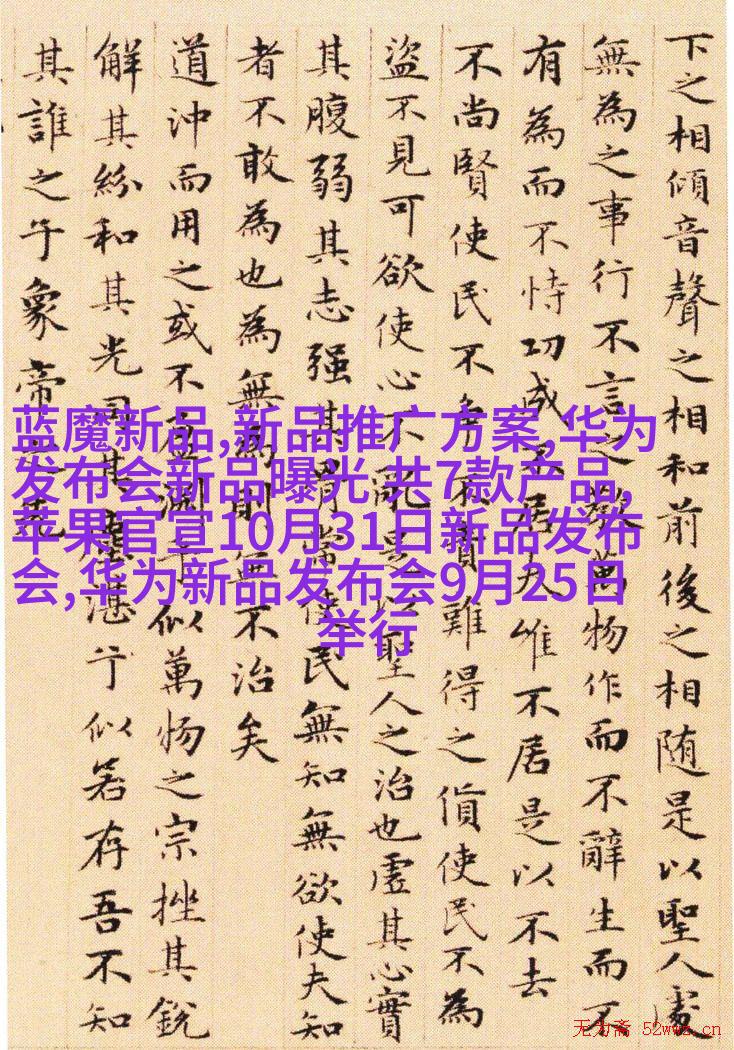 下之相傾音聲之相和前後之相随是以聖人處
無為之事行不言之教萬物作而不辭生而不
有為而不恃功成不居夫惟不居是以不去
不尚賢使民不爭不貴難得之貨使民不為
盜不見可欲使心不亂是以聖人之治也虛其心實
其腹弱其志强其骨常使民無知無欲使夫知
者不敢為也為無為則無不治矣
道沖而用之或不盈淵乎似萬物之宗挫其銳
解其紛和其光同其塵湛兮似若存吾不知
其誰之子象帝之先
蓝魔新品,新品推广方案,华为
发布会新品曝光 共7款产品,
苹果官宣10月31日新品发布
会,华为新品发布会9月25日
举行
无为斋 52wwz.cn